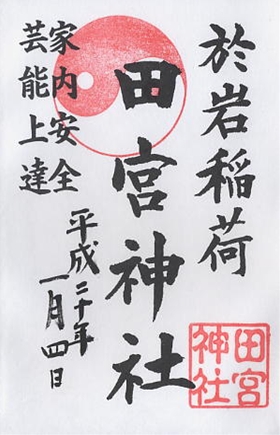 於岩稲荷
田宮神社
家内安全
芸能上達
平成二十年
一月四日
田宮
神社